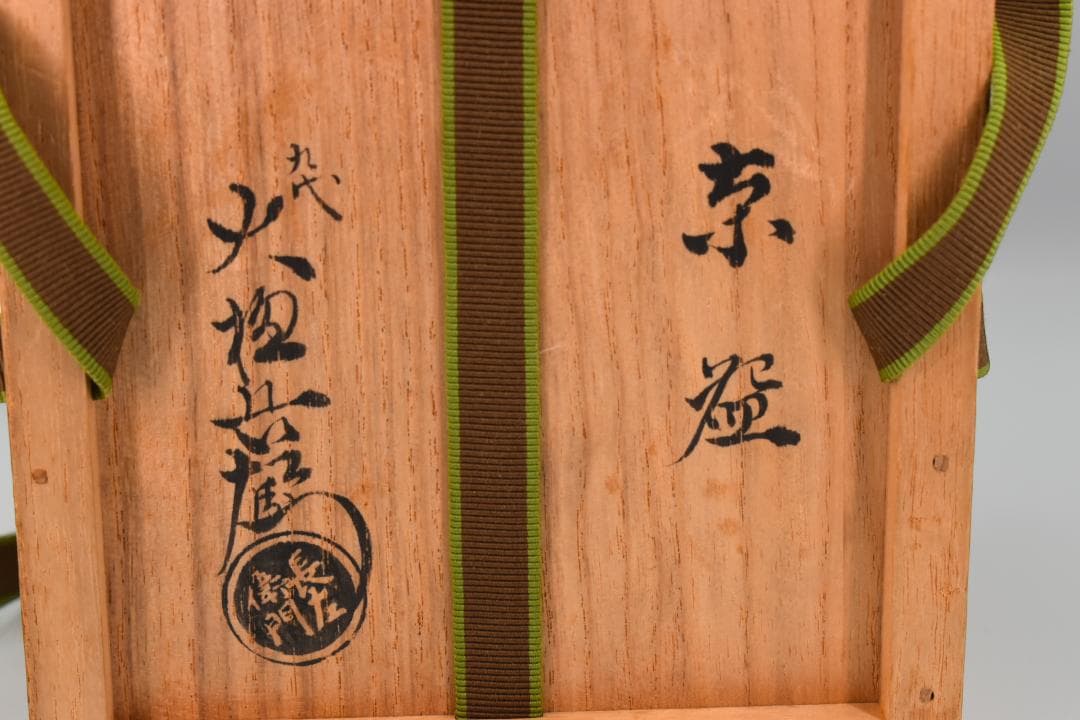 茶盌
九代
大樋長左衛門
長左衛門